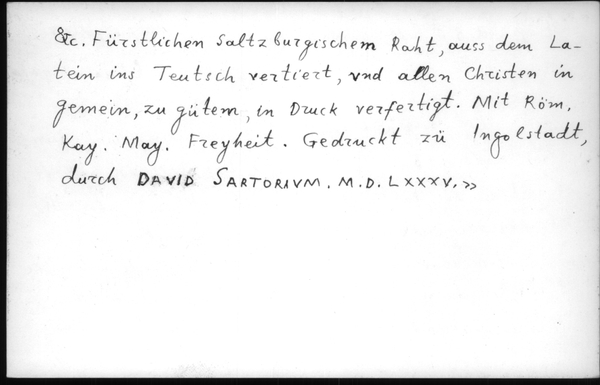 &c. Fürstlichen Saltzburgischem Raht, auss dem La-
tein ins Teutsch vertiert, vnd allen Christen in
gemein, zu gütem, in Druck verfertigt. Mit Röm.
Kay. May. Freyheit. Gedruckt zü Ingolstadt,
durch DAVID SARTORIVM. M.D.LXXXV.»